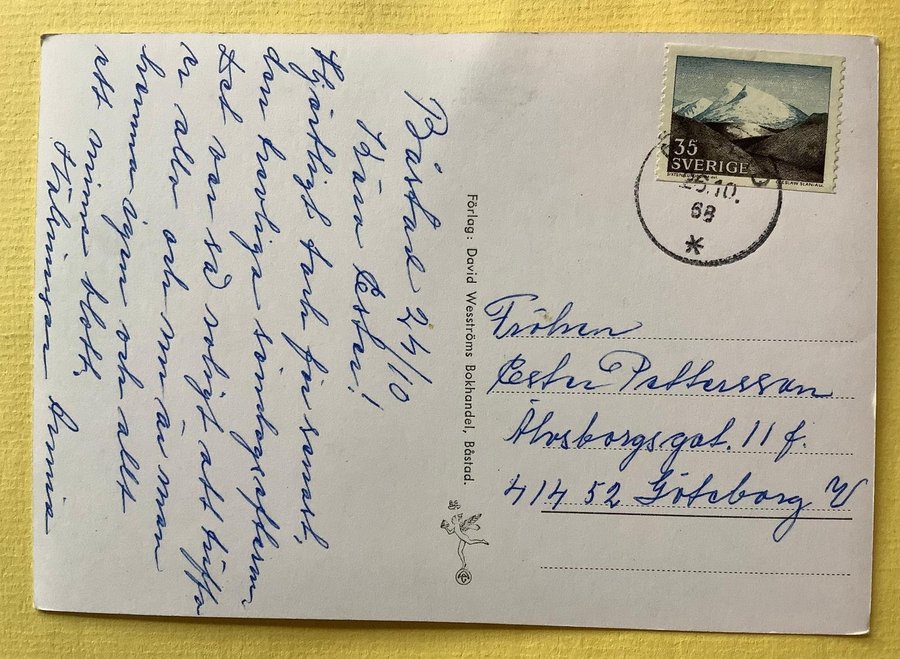 Båstad 24/10
Kära Ester!
Hjärtligt tack för senast,
den trevliga söndagseftersm.
Det var så roligt att träffa
er alla och nu är man
hemma igen och allt
ett minne blott.
Hälningar Annia
Förlag: David Wesströms Bokhandel, Båstad.
35
SVERIGE
10.
68
Fröken
Ester Pettersson
Älvsborgsgat. 11 f.
414 52 Göteborg V